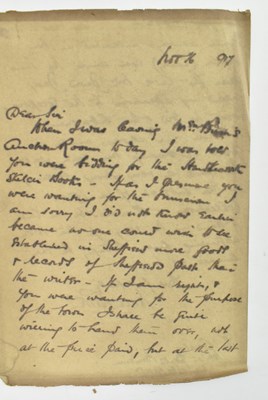 Nov 16 97
Dear Sir
When I was leaving Mr
Auction Room to day I was told
you were bidding for the
Books — I presume you
were wanting for the Museum I
am sorry I did not know Earlier
because no one could wish to see
Established in Sheffield more good
records of Sheffields past than
the writer — If I am right, &
you were wanting for the purpose
of the town I shall be quite
willing to hand them over, not
at the price paid, but at the last